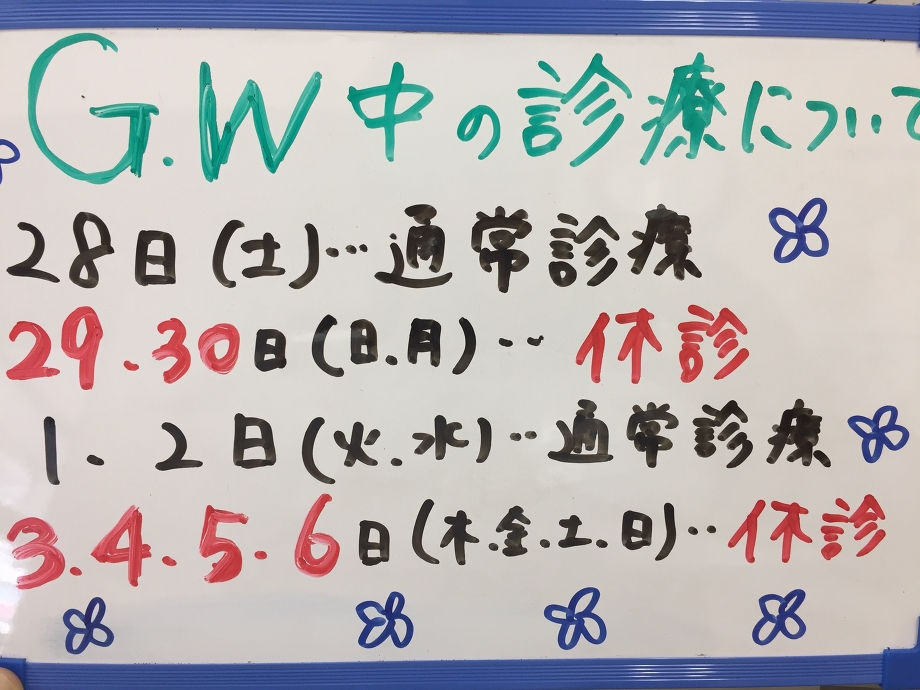 G.W中の診療について
28日(土)…通常診療
29.30日(日.月)…休診
1.2日(火.水)…通常診療
3.4.5.6日(木.金.土.日)‥休診